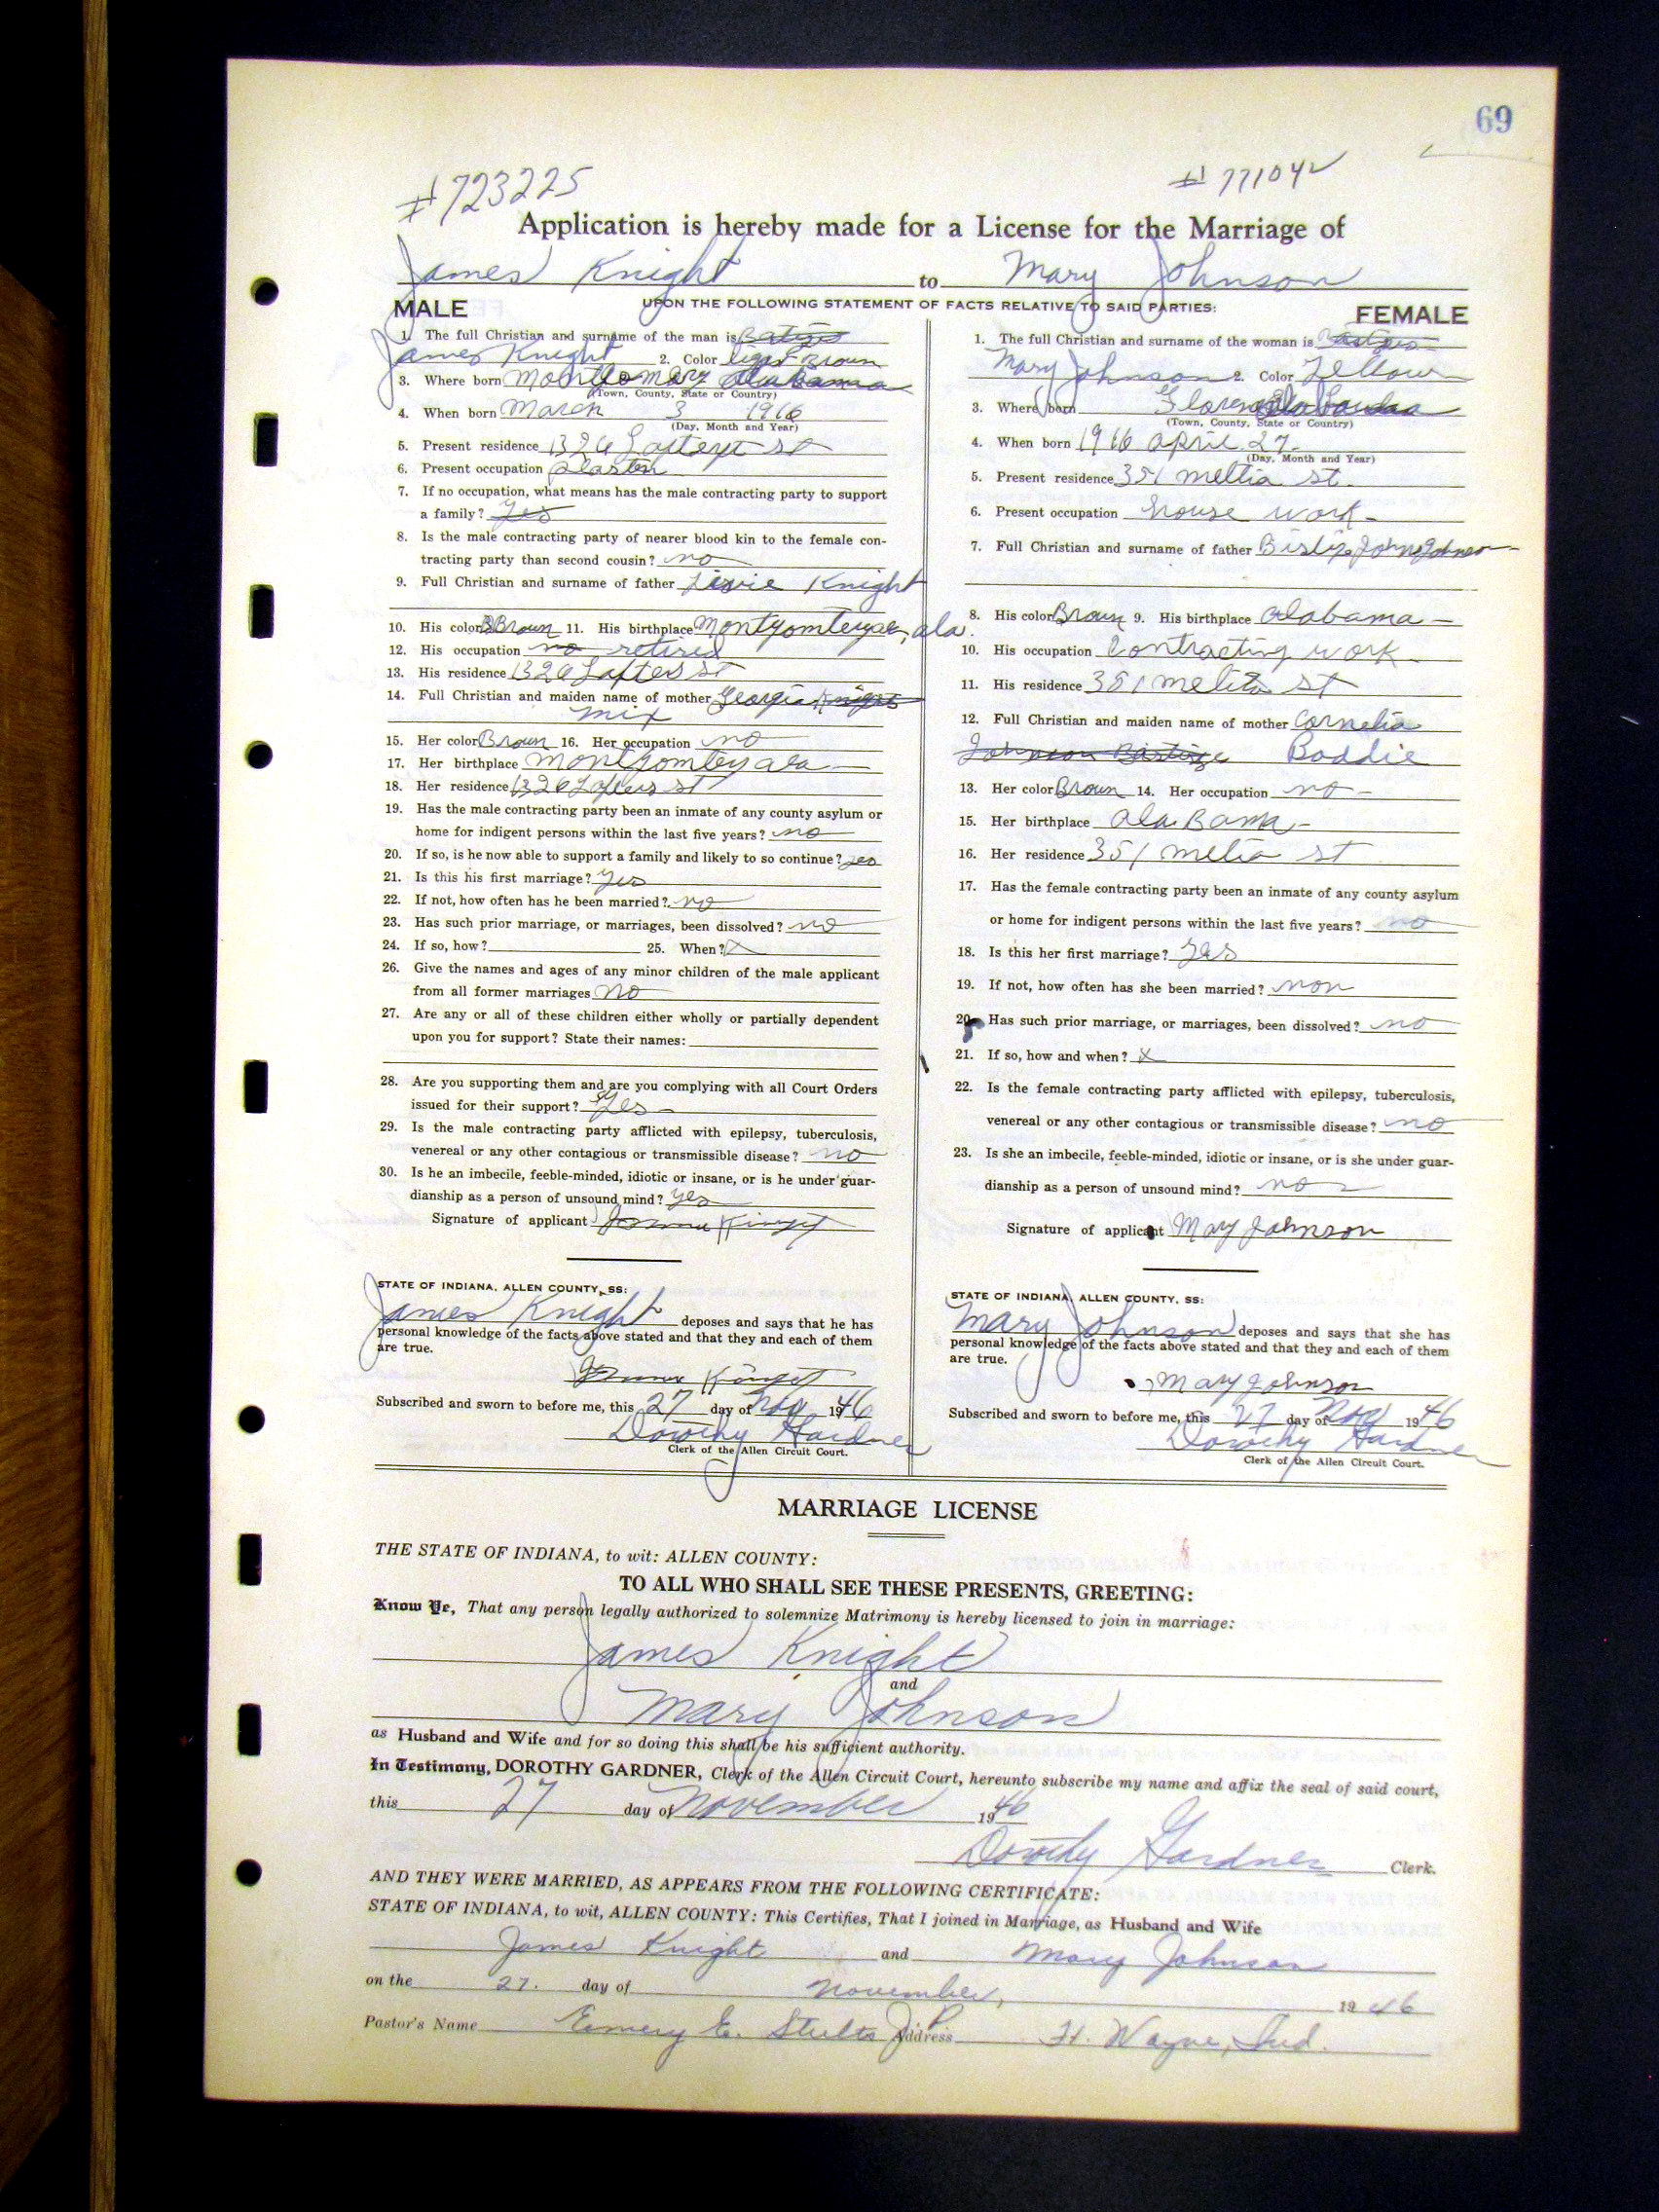 69
#723225
#771042
Application is hereby made for a License for the Marriage of
James Knight to Mary Johnson
UPON THE FOLLOWING STATEMENT OF FACTS RELATIVE TO SAID PARTIES:
MALE
1. The full Christian and surname of the man is
James Knight 2. Color light Brown
3. Where born Montgomary Alabama
(Town, County, State or Country)
4. When born March 3 1916
(Day, Month and Year)
5. Present residence 1326 st
6. Present occupation
7. If no occupation, what means has the male contracting party to support
a family? Yes
8. Is the male contracting party of nearer blood kin to the female con-
tracting party than second cousin? no
9. Full Christian and surname of father Knight
10. His color Brown 11. His birthplace ala.
12. His occupation no retired
13. His residence 1326 st
14. Full Christian and maiden name of mother Georgia Knight
mix
15. Her color Brown 16. Her occupation no
17. Her birthplace Montgomley ala
18. Her residence 1326 st
19. Has the male contracting party been an inmate of any county asylum or
home for indigent persons within the last five years? no
20. If so, is he now able to support a family and likely to so continue? yes
21. Is this his first marriage? Yes
22. If not, how often has he been married? no
23. Has such prior marriage, or marriages, been dissolved? no
24. If so, how? 25. When? X
26. Give the names and ages of any minor children of the male applicant
from all former marriages no
27. Are any or all of these children either wholly or partially dependent
upon you for support? State their names:
28. Are you supporting them and are you complying with all Court Orders
issued for their support? Yes
29. Is the male contracting party afflicted with epilepsy, tuberculosis,
venereal or any other contagious or transmissible disease? no
30. Is he an imbecile, feeble-minded, idiotic or insane, or is he under guar-
dianship as a person of unsound mind? yes
Signature of applicant
STATE OF INDIANA, ALLEN COUNTY, SS:
James Knight deposes and says that he has
personal knowledge of the facts above stated and that they and each of them
are true.
Subscribed and sworn to before me, this 27 day of Nov 1946
Dorothy Gardner
Clerk of the Allen Circuit Court.
FEMALE
1. The full Christian and surname of the woman is
Mary Johnson 2. Color Yellow
3. Where born
(Town, County, State or Country)
4. When born 1916 April 27
(Day, Month and Year)
5. Present residence 351 mellia st.
6. Present occupation house work
7. Full Christian and surname of father John Johnson
8. His color Brown 9. His birthplace Alabama
10. His occupation Contracting work
11. His residence 351 melita st
12. Full Christian and maiden name of mother Cornelia
Johnson Boddie
13. Her color Brown 14. Her occupation no
15. Her birthplace Ala Bama
16. Her residence 351 melia st
17. Has the female contracting party been an inmate of any county asylum
or home for indigent persons within the last five years? no
18. Is this her first marriage? Yes
19. If not, how often has she been married? non
20. Has such prior marriage, or marriages, been dissolved? no
21. If so, how and when? X
22. Is the female contracting party afflicted with epilepsy, tuberculosis,
venereal or any other contagious or transmissible disease? no
23. Is she an imbecile, feeble-minded, idiotic or insane, or is she under guar-
dianship as a person of unsound mind? no
Signature of applicant Mary Johnson
STATE OF INDIANA, ALLEN COUNTY, SS:
Mary Johnson deposes and says that she has
personal knowledge of the facts above stated and that they and each of them
are true.
Mary Johnson
Subscribed and sworn to before me, this 27 day of Nov 1946
Dorothy Gardner
Clerk of the Allen Circuit Court.
MARRIAGE LICENSE
THE STATE OF INDIANA, to wit: ALLEN COUNTY:
TO ALL WHO SHALL SEE THESE PRESENTS, GREETING:
Know Ye, That any person legally authorized to solemnize Matrimony is hereby licensed to join in marriage:
James Knight
and
Mary Johnson
as Husband and Wife and for so doing this shall be his sufficient authority.
In Testimony, DOROTHY GARDNER, Clerk of the Allen Circuit Court, hereunto subscribe my name and affix the seal of said court,
this 27 day of November 1946
Dorothy Gardner Clerk.
AND THEY WERE MARRIED, AS APPEARS FROM THE FOLLOWING CERTIFICATE:
STATE OF INDIANA, to wit, ALLEN COUNTY: This Certifies, That I joined in Marriage, as Husband and Wife
James Knight and Mary Johnson
on the 27. day of November, 1946
Pastor's Name Emery E. Stults J.P. Address Ft. Wayne, Ind.